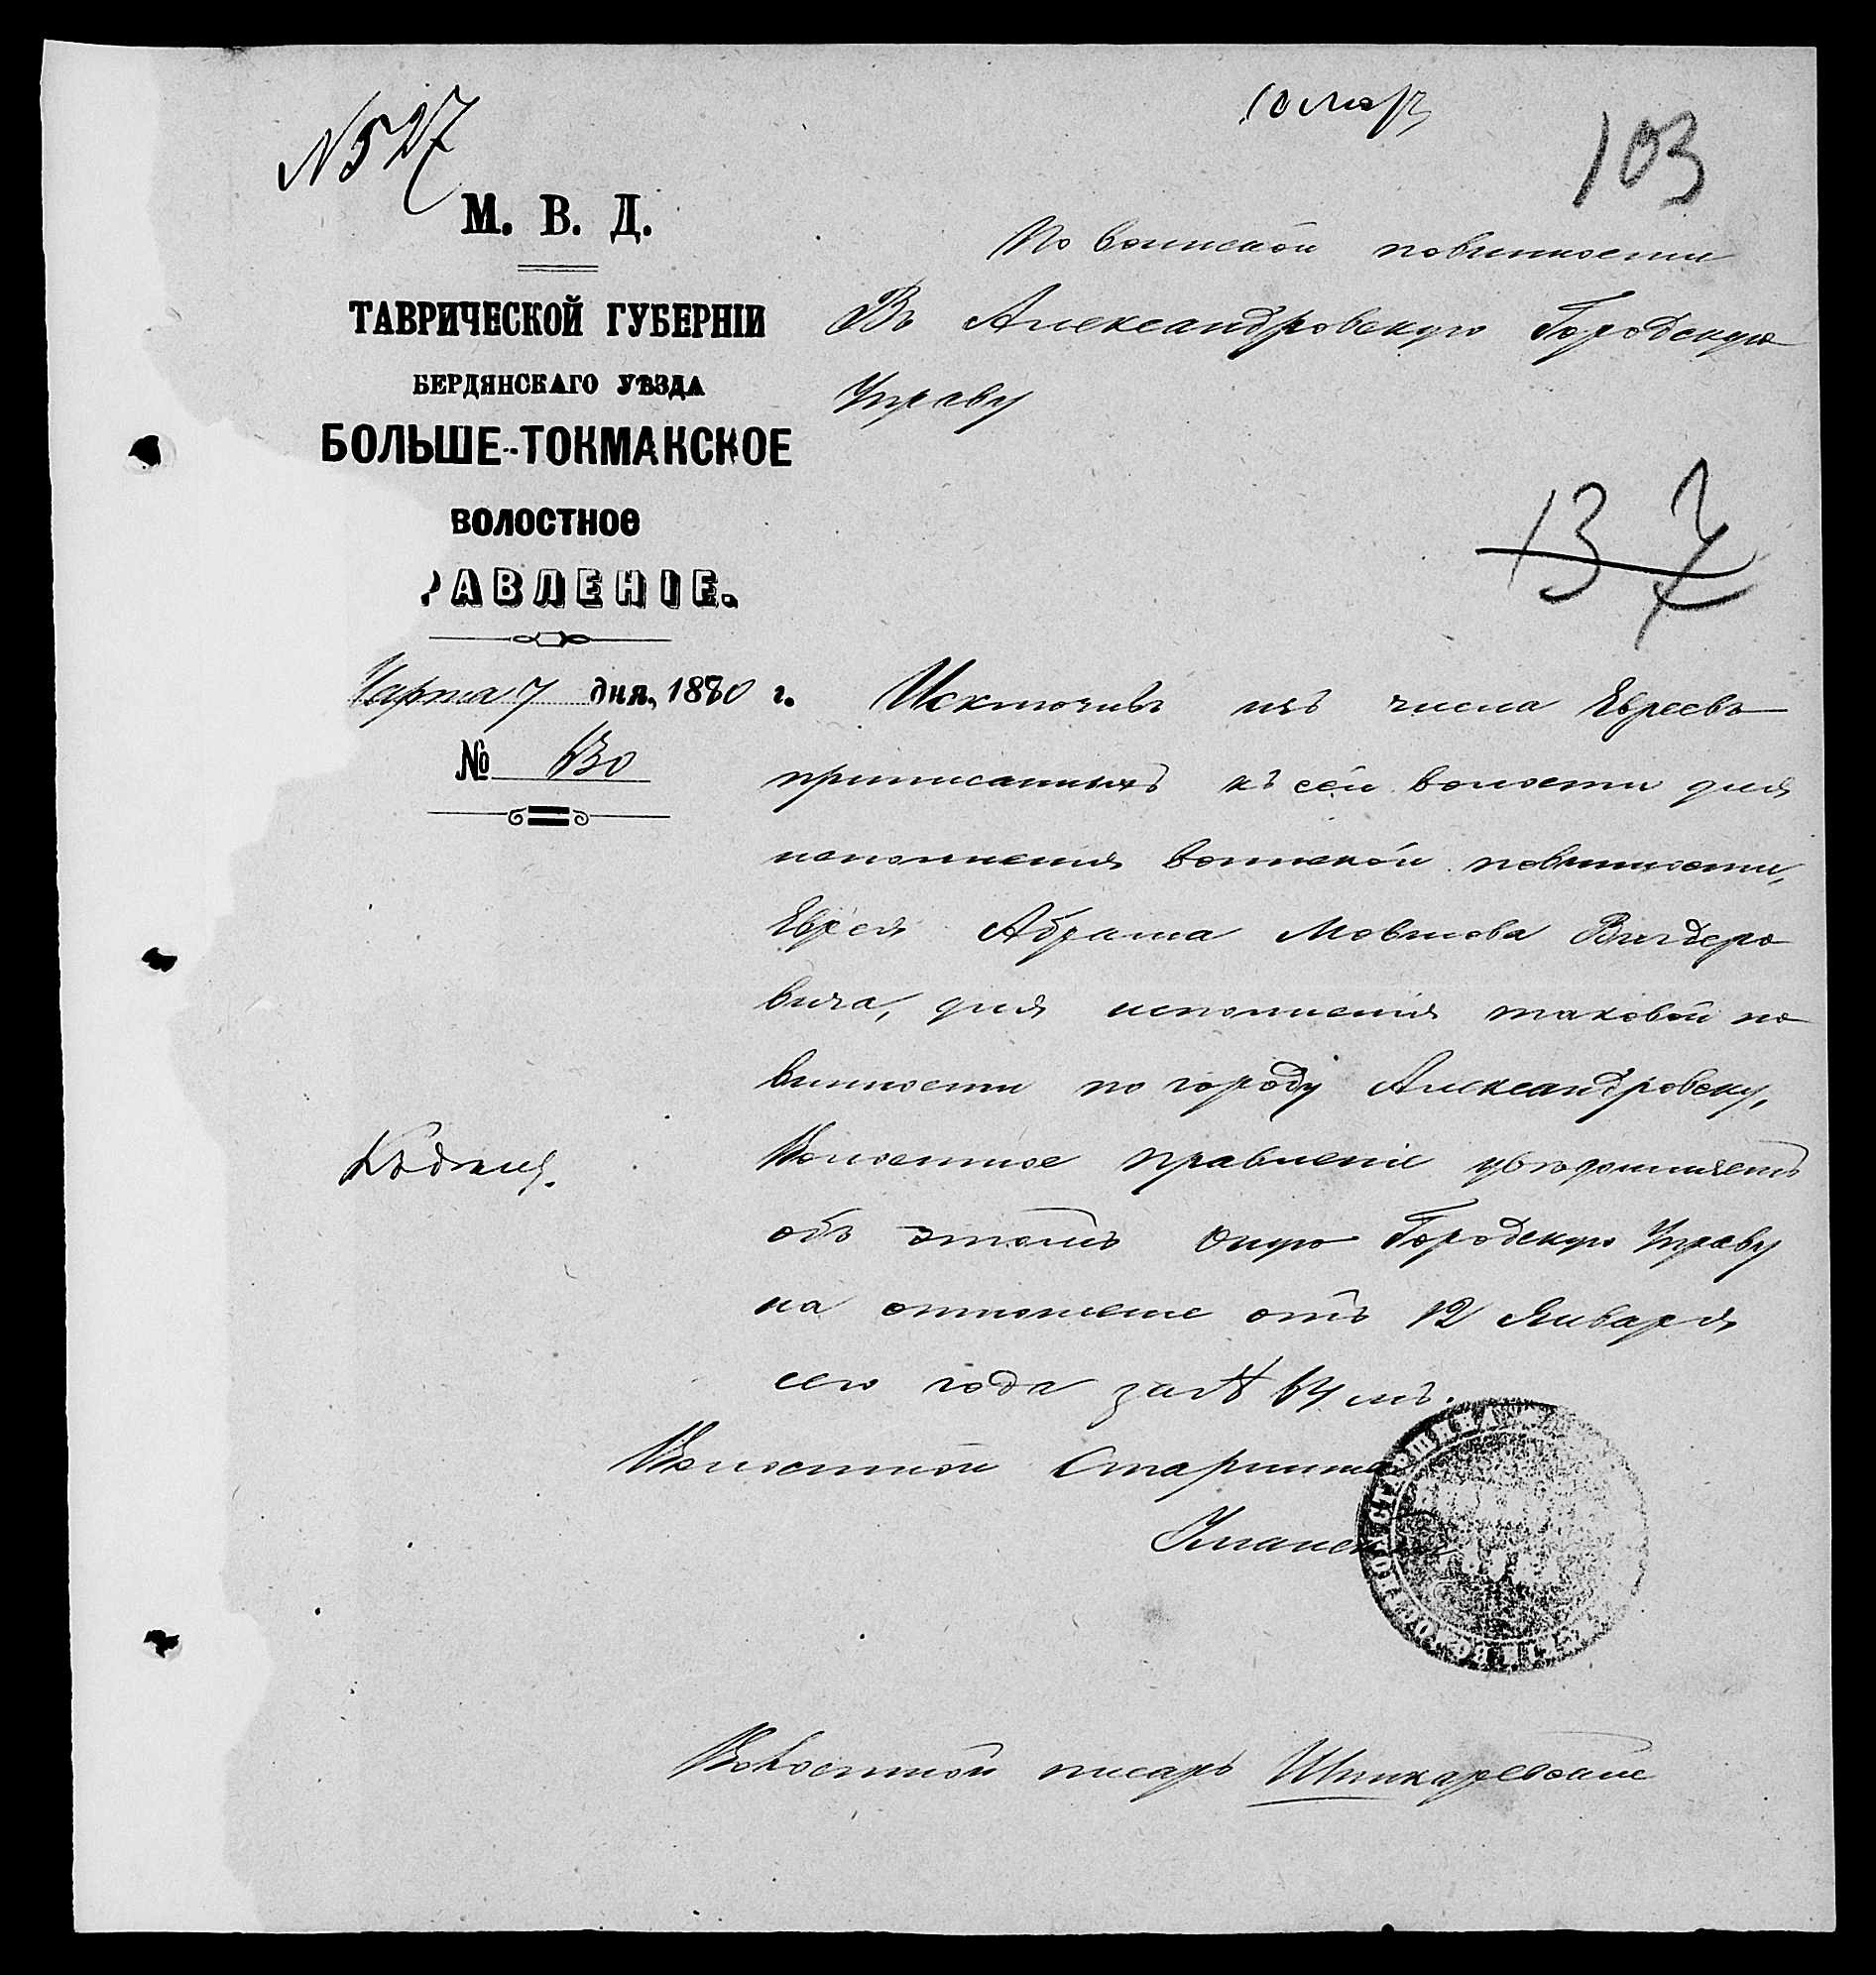 № 527
10 мар
103
М. В. Д.
ТАВРИЧЕСКОЙ ГУБЕРНІИ
БЕРДЯНСКАГО УѢЗДА
БОЛЬШЕ-ТОКМАКСКОЕ
ВОЛОСТНОЕ
РАВЛЕНІЕ.
Марта 7 дня, 1880 г.
№ 630
По воинской повинности
Въ Александровскую Городскую
Управу
137
Исключивъ изъ числа Евреевъ
приписанныхъ къ сей волости для
исполненія воинской повинности,
Еврея Абрама Мовшова Вигдеро
вича, для исполненія таковой по
винности по городу Александровску,
Волостное правленіе увѣдомляетъ
объ этомъ оную Городскую Управу
на отношеніе отъ 12 Января
сего года за № 64 мъ.
Волостной Старшина
Волостной писарь
ВОЛОСТНОЙ СТАРШИНА